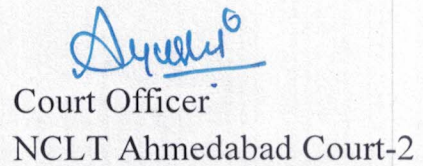 Court Officer
NCLT Ahmedabad Court-2